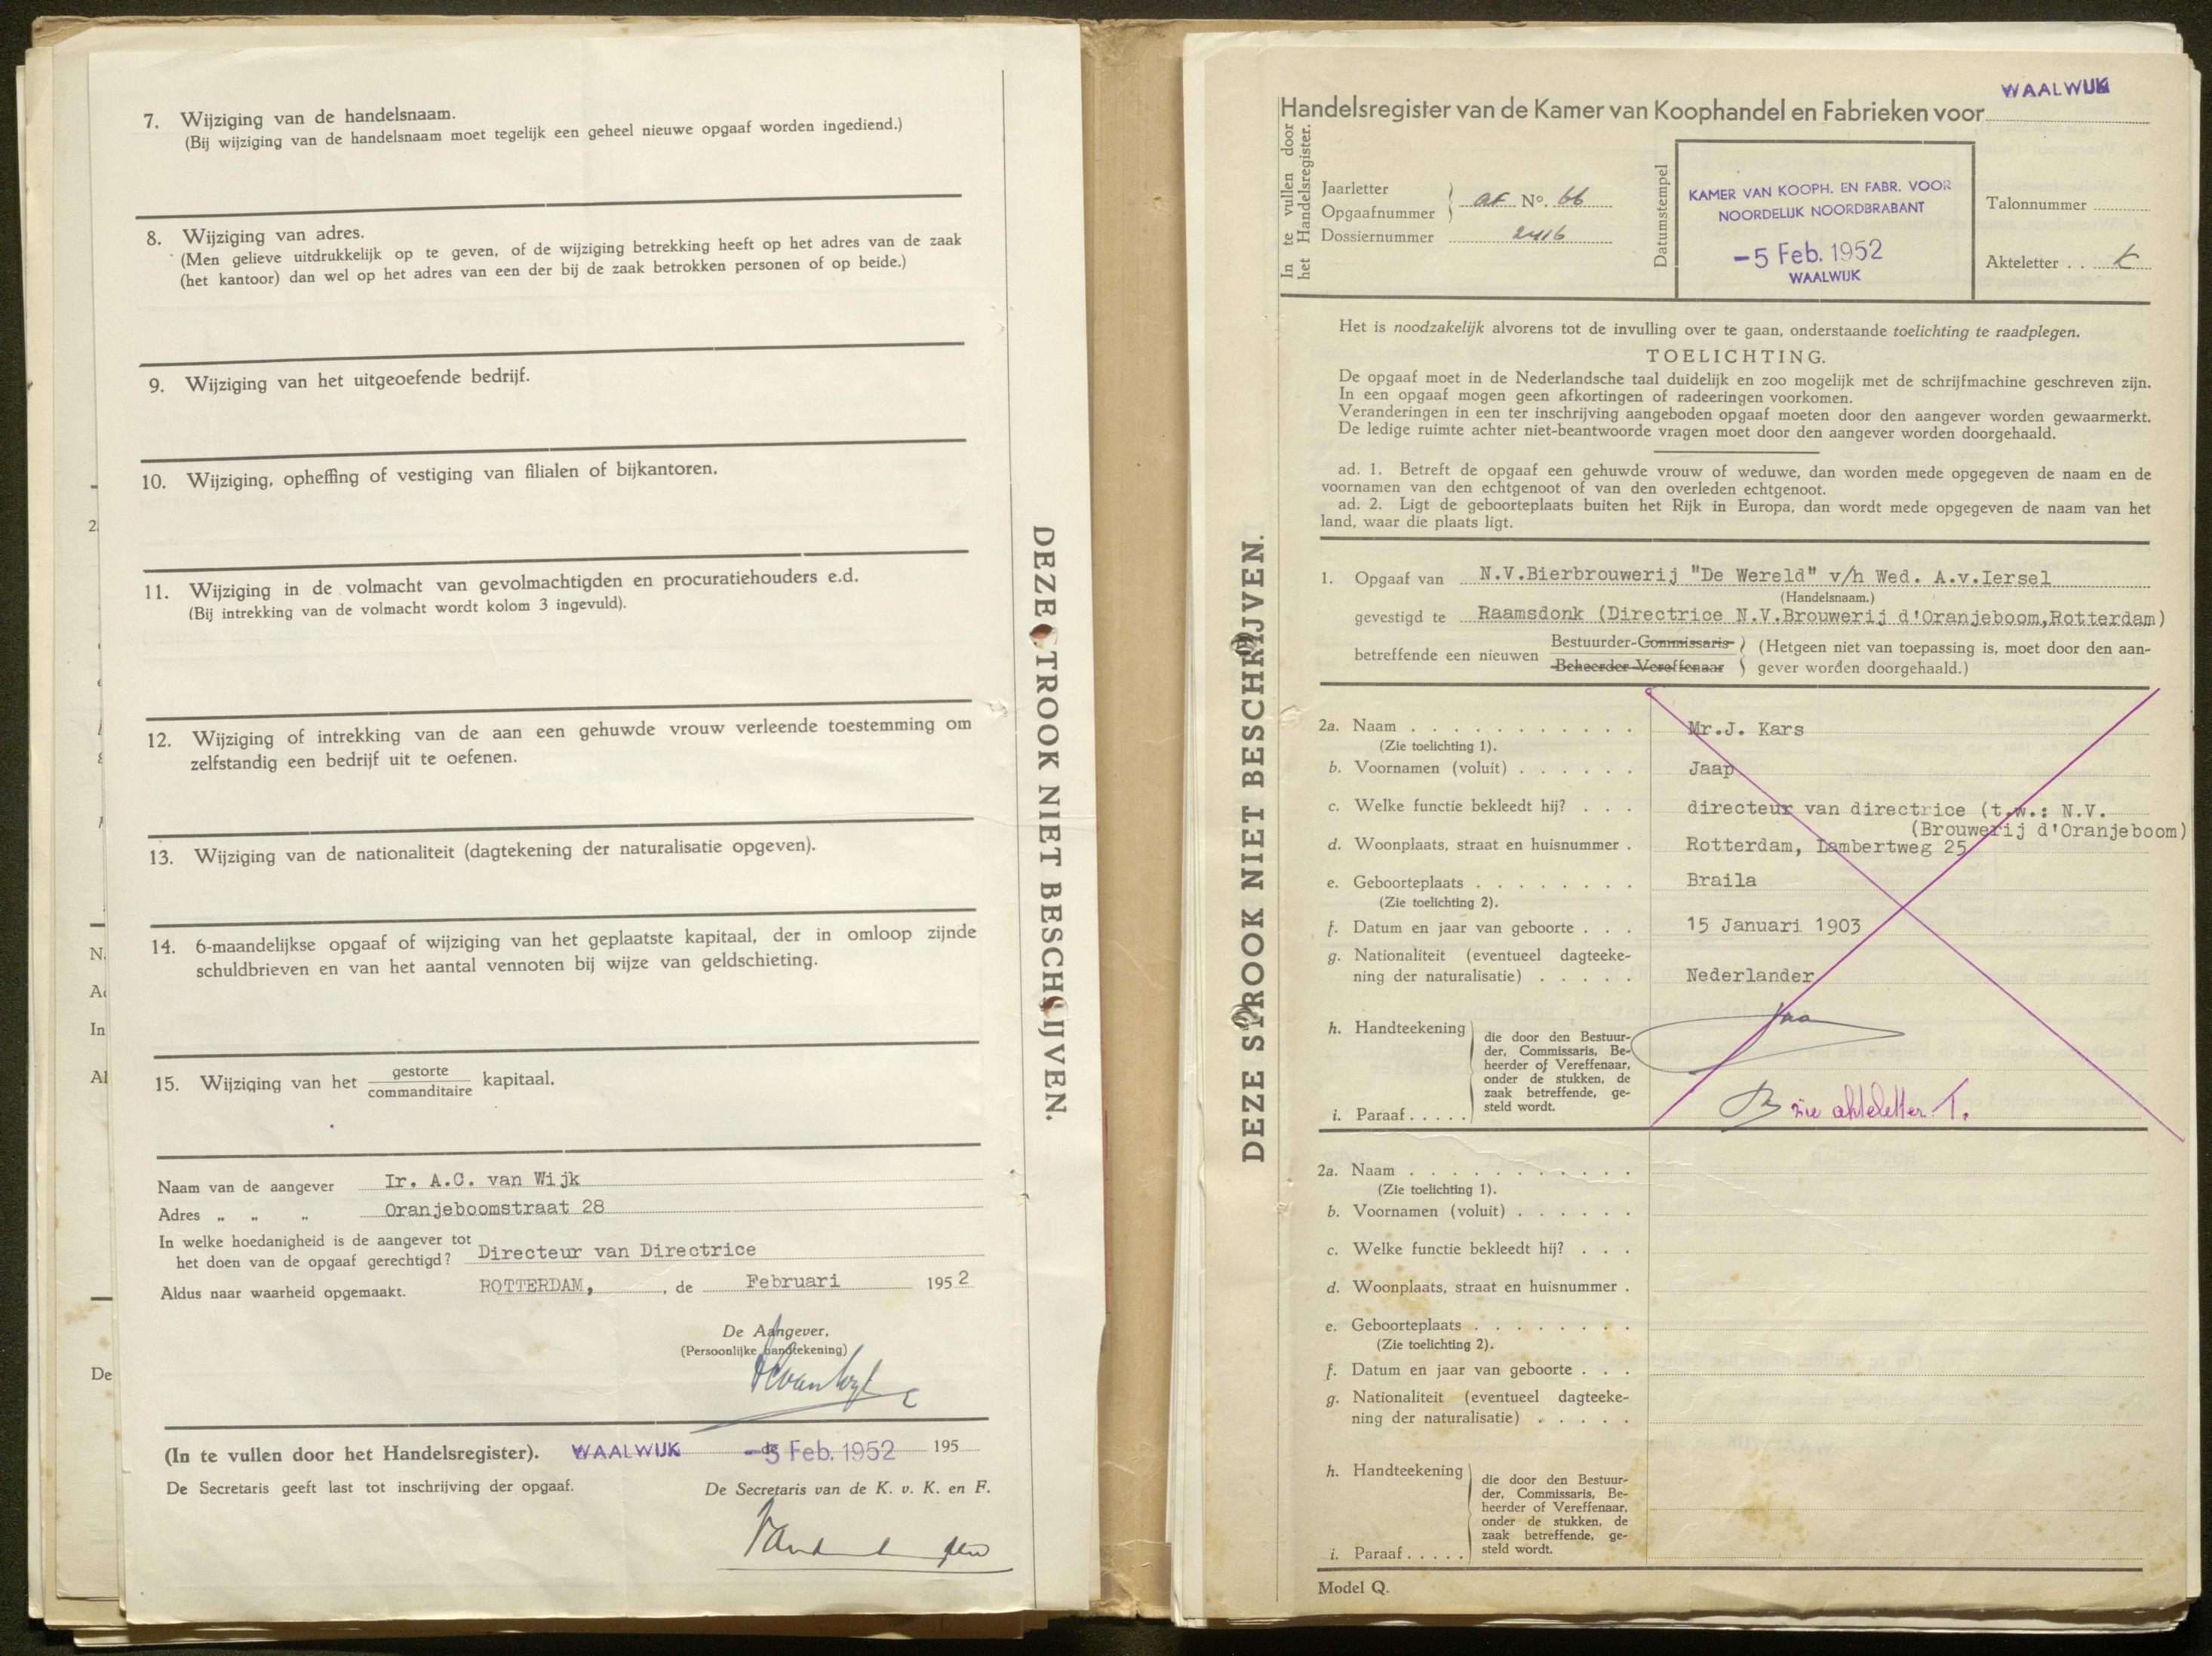 7. Wijziging van de handelsnaam.
(Bij wijziging van de handelsnaam moet tegelijk een geheel nieuwe opgaaf worden ingediend.)
8. Wijziging van adres.
(Men gelieve uitdrukkelijk op te geven, of de wijziging betrekking heeft op het adres van de zaak
(het kantoor) dan wel op het adres van een der bij de zaak betrokken personen of op beide.)
9. Wijziging van het uitgeoefende bedrijf.
10. Wijziging, opheffing of vestiging van filialen of bijkantoren.
11. Wijziging in de volmacht van gevolmachtigden en procuratiehouders e.d.
(Bij intrekking van de volmacht wordt kolom 3 ingevuld).
12. Wijziging of intrekking van de aan een gehuwde vrouw verleende toestemming om
zelfstandig een bedrijf uit te oefenen.
13. Wijziging van de nationaliteit (dagtekening der naturalisatie opgeven).
14. 6-maandelijkse opgaaf of wijziging van het geplaatste kapitaal, der in omloop zijnde
schuldbrieven en van het aantal vennoten bij wijze van geldschieting.
15. Wijziging van het gestorte kapitaal.
commanditaire
Naam van de aangever Ir. A.C. van Wijk
Adres „ „ „ Oranjeboomstraat 28
In welke hoedanigheid is de aangever tot
het doen van de opgaaf gerechtigd? Directeur van Directrice
Aldus naar waarheid opgemaakt. ROTTERDAM, , de Februari 1952
De Aangever,
(Persoonlijke handtekening)
(In te vullen door het Handelsregister). WAALWIJK de -5 Feb. 1952 195
De Secretaris geeft last tot inschrijving der opgaaf. De Secretaris van de K. v. K. en F.
DEZE STROOK NIET BESCHRIJVEN.
DEZE STROOK NIET BESCHRIJVEN.
WAALWIJK
Handelsregister van de Kamer van Koophandel en Fabrieken voor
In te vullen door
het Handelsregister.
Jaarletter
Opgaafnummer
af No. 66
Dossiernummer 2416
Datumstempel
KAMER VAN KOOPH. EN FABR. VOOR
NOORDELIJK NOORDBRABANT
-5 Feb. 1952
WAALWIJK
Talonnummer
Akteletter . . K
Het is noodzakelijk alvorens tot de invulling over te gaan, onderstaande toelichting te raadplegen.
TOELICHTING.
De opgaaf moet in de Nederlandsche taal duidelijk en zoo mogelijk met de schrijfmachine geschreven zijn.
In een opgaaf mogen geen afkortingen of radeeringen voorkomen.
Veranderingen in een ter inschrijving aangeboden opgaaf moeten door den aangever worden gewaarmerkt.
De ledige ruimte achter niet-beantwoorde vragen moet door den aangever worden doorgehaald.
ad. 1. Betreft de opgaaf een gehuwde vrouw of weduwe, dan worden mede opgegeven de naam en de
voornamen van den echtgenoot of van den overleden echtgenoot.
ad. 2. Ligt de geboorteplaats buiten het Rijk in Europa, dan wordt mede opgegeven de naam van het
land, waar die plaats ligt.
1. Opgaaf van N.V.Bierbrouwerij "De Wereld" v/h Wed. A.v.Iersel
(Handelsnaam.)
gevestigd te Raamsdonk (Directrice N.V.Brouwerij d'Oranjeboom,Rotterdam)
betreffende een nieuwen Bestuurder-Commissaris (Hetgeen niet van toepassing is, moet door den aan-
Beheerder-Vereffenaar gever worden doorgehaald.)
2a. Naam . . . . . . . . . . . Mr.J. Kars
(Zie toelichting 1).
b. Voornamen (voluit) . . . . . . Jaap
c. Welke functie bekleedt hij? . . . directeur van directrice (t.w.: N.V.
(Brouwerij d'Oranjeboom)
d. Woonplaats, straat en huisnummer . Rotterdam, Lambertweg 25
e. Geboorteplaats . . . . . . . . Braila
(Zie toelichting 2).
f. Datum en jaar van geboorte . . . 15 Januari 1903
g. Nationaliteit (eventueel dagteeke-
ning der naturalisatie) . . . . . Nederlander
h. Handteekening
i. Paraaf . . . . .
die door den Bestuur-
der, Commissaris, Be-
heerder of Vereffenaar,
onder de stukken, de
zaak betreffende, ge-
steld wordt.
zie akteletter T.
2a. Naam . . . . . . . . . . .
(Zie toelichting 1).
b. Voornamen (voluit) . . . . . .
c. Welke functie bekleedt hij? . . .
d. Woonplaats, straat en huisnummer .
e. Geboorteplaats . . . . . . . .
(Zie toelichting 2).
f. Datum en jaar van geboorte . . .
g. Nationaliteit (eventueel dagteeke-
ning der naturalisatie) . . . . .
h. Handteekening
i. Paraaf . . . . .
die door den Bestuur-
der, Commissaris, Be-
heerder of Vereffenaar,
onder de stukken, de
zaak betreffende, ge-
steld wordt.
Model Q.